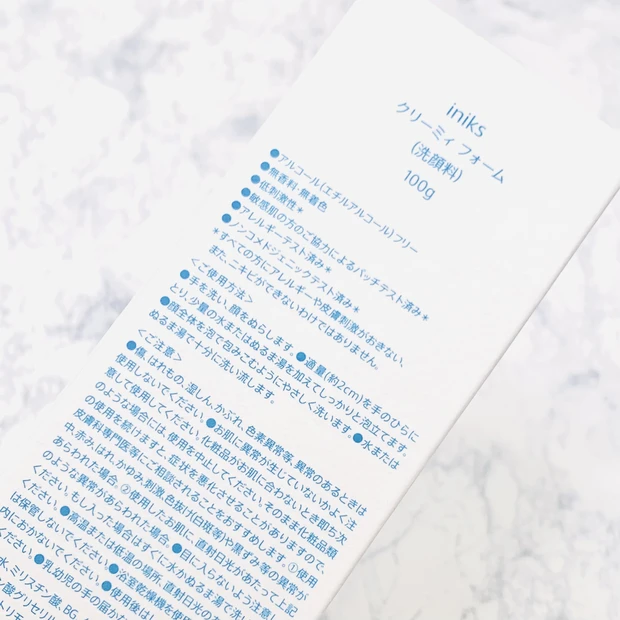 iniks
クリーミィ フォーム
(洗顔料)
100g
●アルコール(エチルアルコール)フリー
●無香料・無着色
●低刺激性*
●敏感肌の方のご協力によるパッチテスト済み*
●アレルギーテスト済み*
●ノンコメドジェニックテスト済み*
*すべての方にアレルギーや皮膚刺激がおきない、
また、ニキビができないわけではありません。
<ご使用方法>
●手を洗い、顔をぬらします。●適量(約2cm)を手のひらに
とり、少量の水またはぬるま湯を加えてしっかりと泡立てます。
●顔全体を泡で包みこむようにやさしく洗います。●水または
ぬるま湯で十分に洗い流します。
<ご注意>
●傷、はれもの、湿しん、かぶれ、色素異常等、異常のあるときは
使用しないでください。●お肌に異常が生じていないかよく注
意して使用してください。化粧品がお肌に合わないとき即ち次
のような場合には、使用を中止してください。そのまま化粧品類
の使用を続けますと、症状を悪化させることがありますので
皮膚科専門医等にご相談されることをおすすめします。①使用
中、赤み、はれ、かゆみ、刺激、色抜け(白斑等)や黒ずみ等の異常が
あらわれた場合 ②使用したお肌に、直射日光があたって上記
のような異常があらわれた場合 ●目に入らないよう注意し
ください。もし入った場合はすぐに水かぬるま湯で洗い
ください。●高温または低温の場所、直射日光の
は保管しないでください。●浴室乾燥機を使用
内におかないでください。●使用後は
ください。●乳幼児の手の届か
水、ミリスチン酸、BG、
ン酸グリセリル